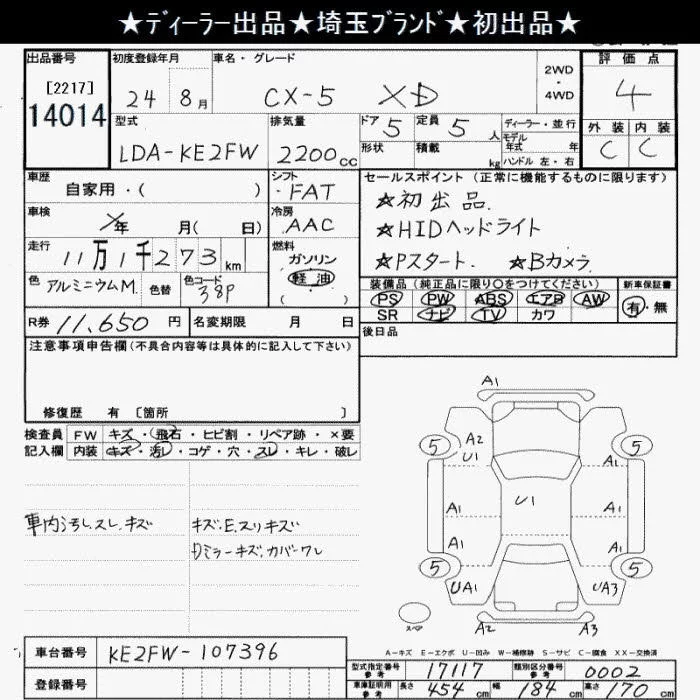 ★ディーラー出品★埼玉ブランド★初出品★
出品番号 初度登録年月 車名・グレード 評価点
[2217] 14014 24 8月 CX-5 XD 2WD・4WD 4
型式 排気量 ドア 定員 ディーラー・並行 外装 内装
LDA-KE2FW 2200cc 5 5人 モデル年式 年 C C
形状 積載 kg ハンドル 左・右
車歴 シフト セールスポイント (正常に機能するものに限ります)
自家用・( ) FAT ★初出品.
車検 年 月( 日) 冷房 AAC ★HIDヘッドライト
走行 11万1千273km 燃料 ガソリン 軽油 ( ) ★Pスタート. ★Bカメラ
色 アルミニウムM. 色替 色コード 38P 装備品 (純正品に限り○をつけてください) 新車保証書
PS PW ABS エアB AW 有・無
SR ナビ TV カワ
R券 11,650円 名変期限 月 日 後日品
注意事項申告欄 (不具合内容等は具体的に記入して下さい)
修復歴 有 [箇所 ]
検査員 FW キズ・飛石・ヒビ割・リペア跡・×要
記入欄 内装 キズ・汚し・コゲ・穴・スレ・キレ・破レ
A1
5 A2 U1 5
A1 U1 A1
A1 A1
5 UA1 UA3 5
スペア A2 A3
車内汚し.スレ.キズ キズ.E.スリキズ
Dミラーキズ.カバーワレ
A-キズ E-エクボ U-凹み W-補修跡 S-サビ C-腐食 XX-交換済
車台番号 KE2FW-107396
型式指定番号 参考 17117 類別区分番号 参考 0002
登録番号 車庫証明用 参考 長さ 454cm 幅 184cm 高さ 170cm